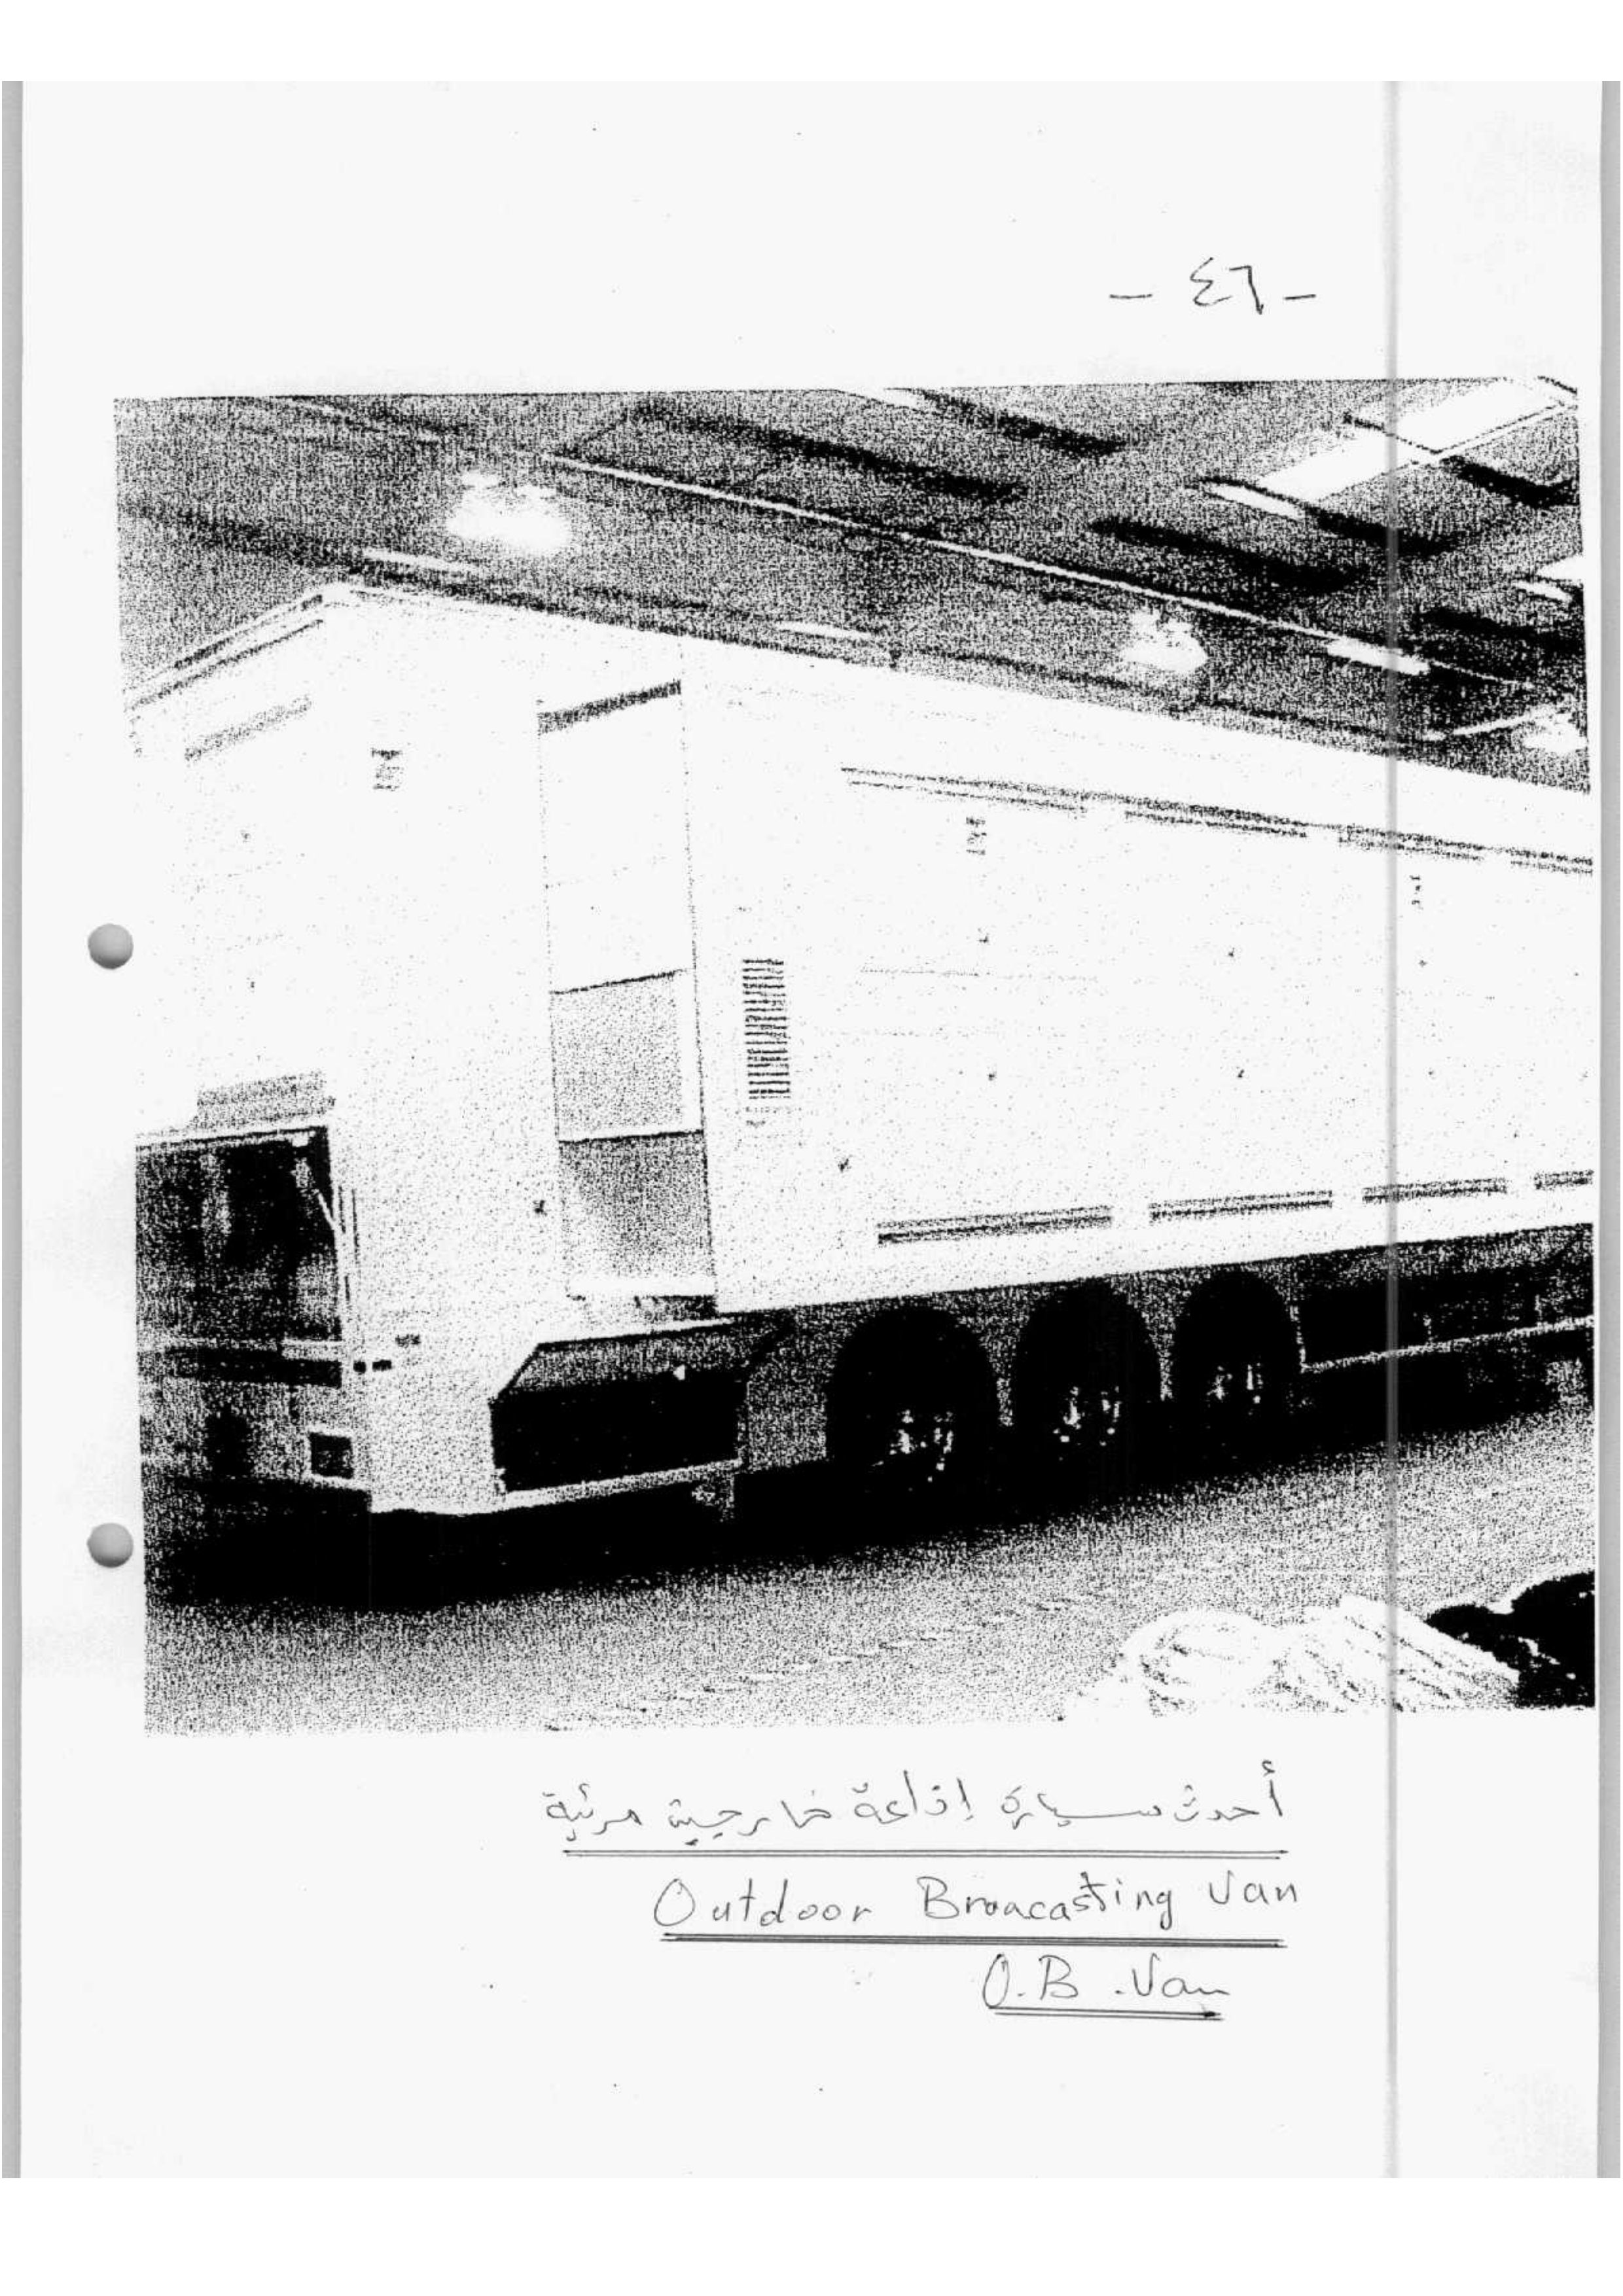 - ٤٦ -
أحدث سيارة إذاعة خارجية مرئية
Outdoor Broacasting Van
O.B. Van